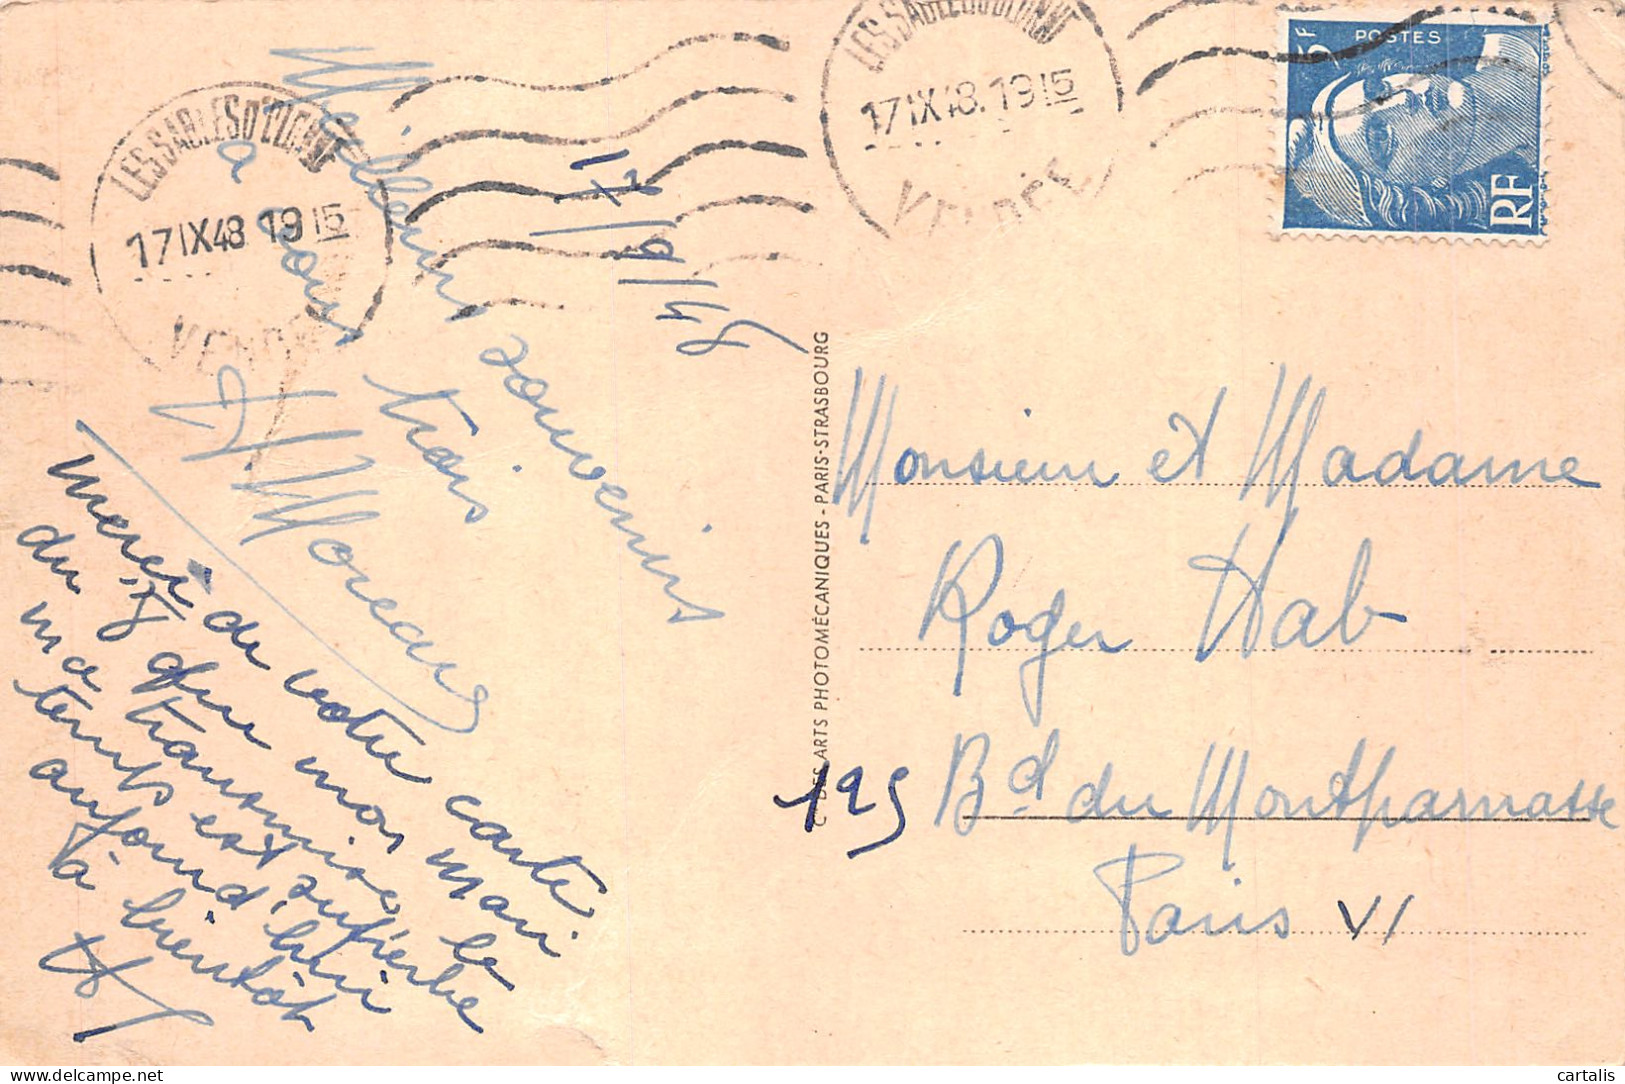 LES SABLES D'OLONNE
17 IX 48. 19 15
VENDÉE
LES SABLES D'OLONNE
17 IX 48. 19 15
VENDÉE
5F
POSTES
RF
17/9/48
Meilleurs souvenirs
à vous trois
A. Moreau
merci de votre carte
du 8 que mon mari
m'a transmise, le
temps est superbe
aujourd'hui
à bientôt
C DES ARTS PHOTOMÉCANIQUES - PARIS-STRASBOURG
Monsieur et Madame
Roger Hab
125 Bd du Montparnasse
Paris VI
cartalis